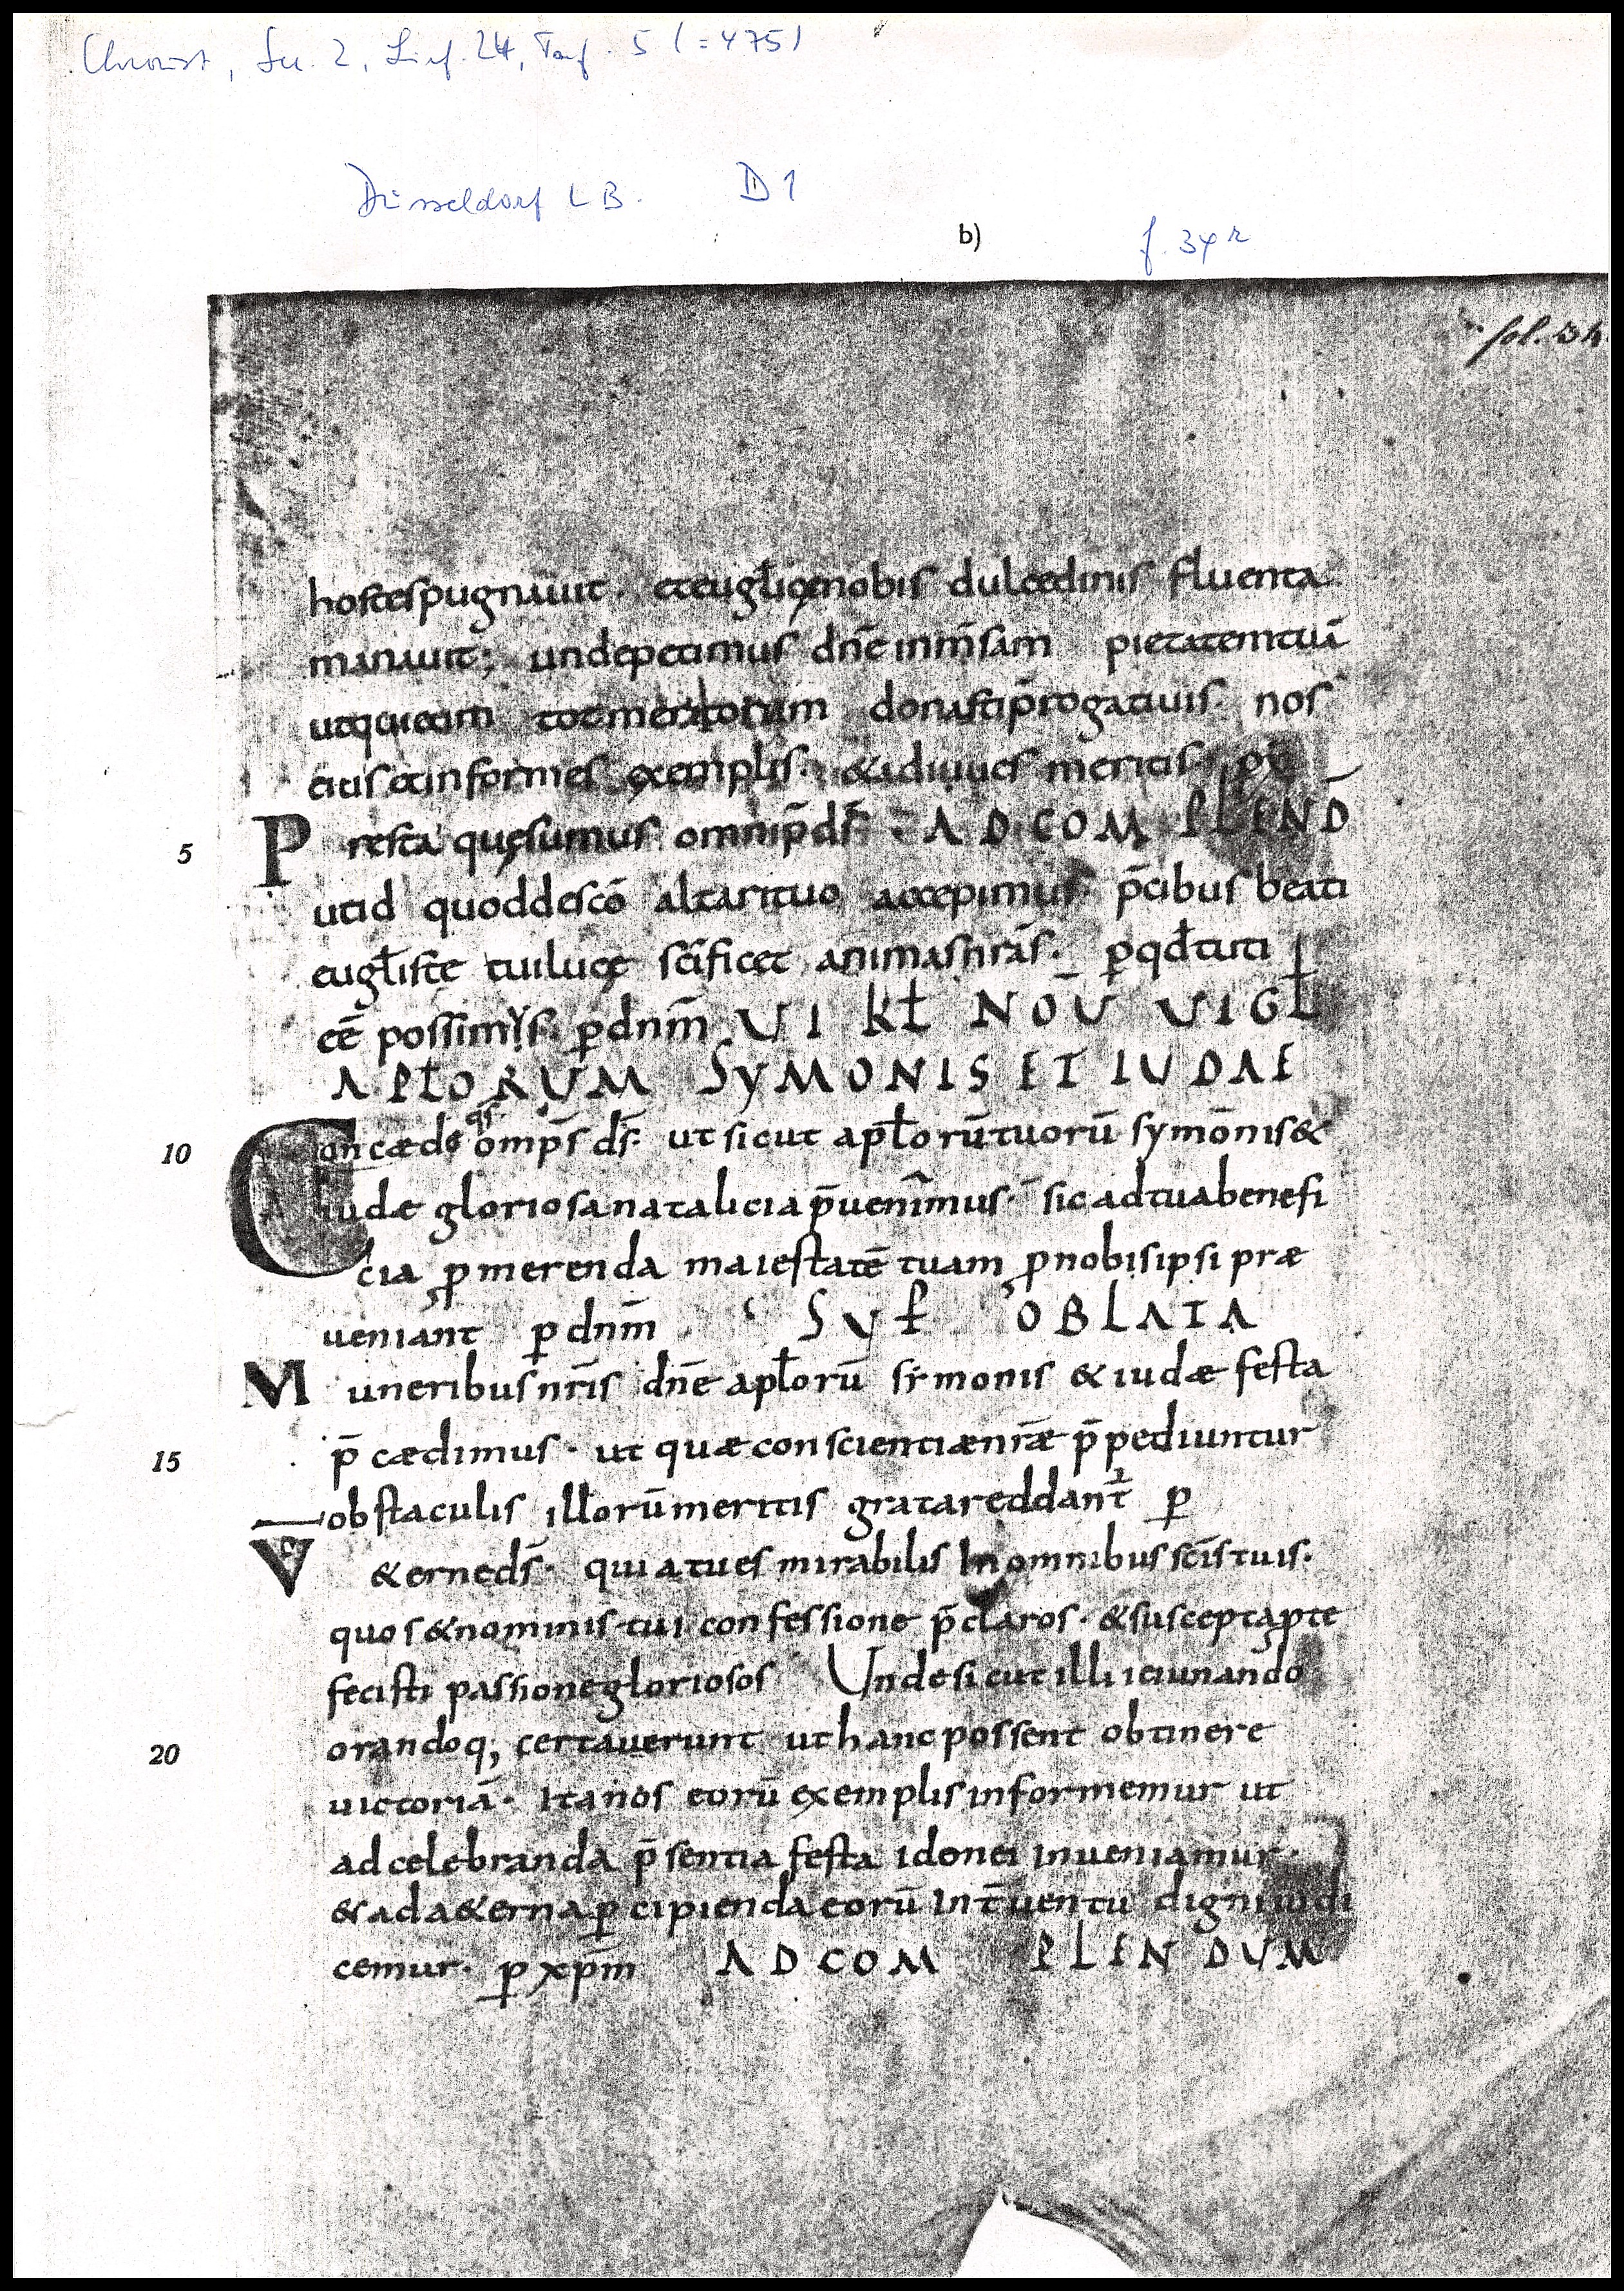 Chroust, Ser. 2, Lief. 24, Taf. 5 (=475)
Düsseldorf LB. D 1
b) f. 34r
fol. 34.
hostes pugnauit · et eugłicę nobis dulcedinis fluenta
manauit; unde petimus dn̄e inm̄sam pietatem tuā
ut qui eum tot meritorum donasti p̄rogatiuis · nos
eius et informes exemplis · & adiuues meritis ·
5 Presta quęsumus omnip̄ ds̄ · AD COMPLEND̄
ut id quod de sc̄o altari tuo accepimus p̄cibus beati
eugłiste tui lucę sc̄ificet animas nr̄as · p qđ tuti
eē possimus · p dnm̄ VI KŁ NOŪ VIGŁ
APŁORUM SYMONIS ET IUDAE
10 Concæde qs̄ omp̄s ds̄ · ut sicut apłorū tuorū symōnis &
iudæ gloriosa natalicia p̄uenimus · sic ad tua benefi
cia pmerenda maiestatē tuam p nobis ipsi præ
ueniant p dnm̄ SUP OBLATA
Muneribus nr̄is dn̄e apłorū symonis & iudæ festa
15 p̄cædimus · ut quæ conscientiæ nr̄æ p̄pediuntur
obstaculis illorū meritis grata reddant̄ p
V& erne ds̄ · quia tu es mirabilis In omnibus sc̄is tuis ·
quos & nominis tui confessione p̄claros · & suscepta p te
fecisti passione gloriosos Unde sicut illi ieiunando
20 orandoq; certauerunt ut hanc possent obtinere
uictoriā · Ita nos eorū exemplis informemur ut
ad celebranda p̄sentia festa idonei inueniamur ·
& ad a&erna pcipienda eorū Int̄uentu digni iudi
cemur · p xp̄m AD COMPLENDUM